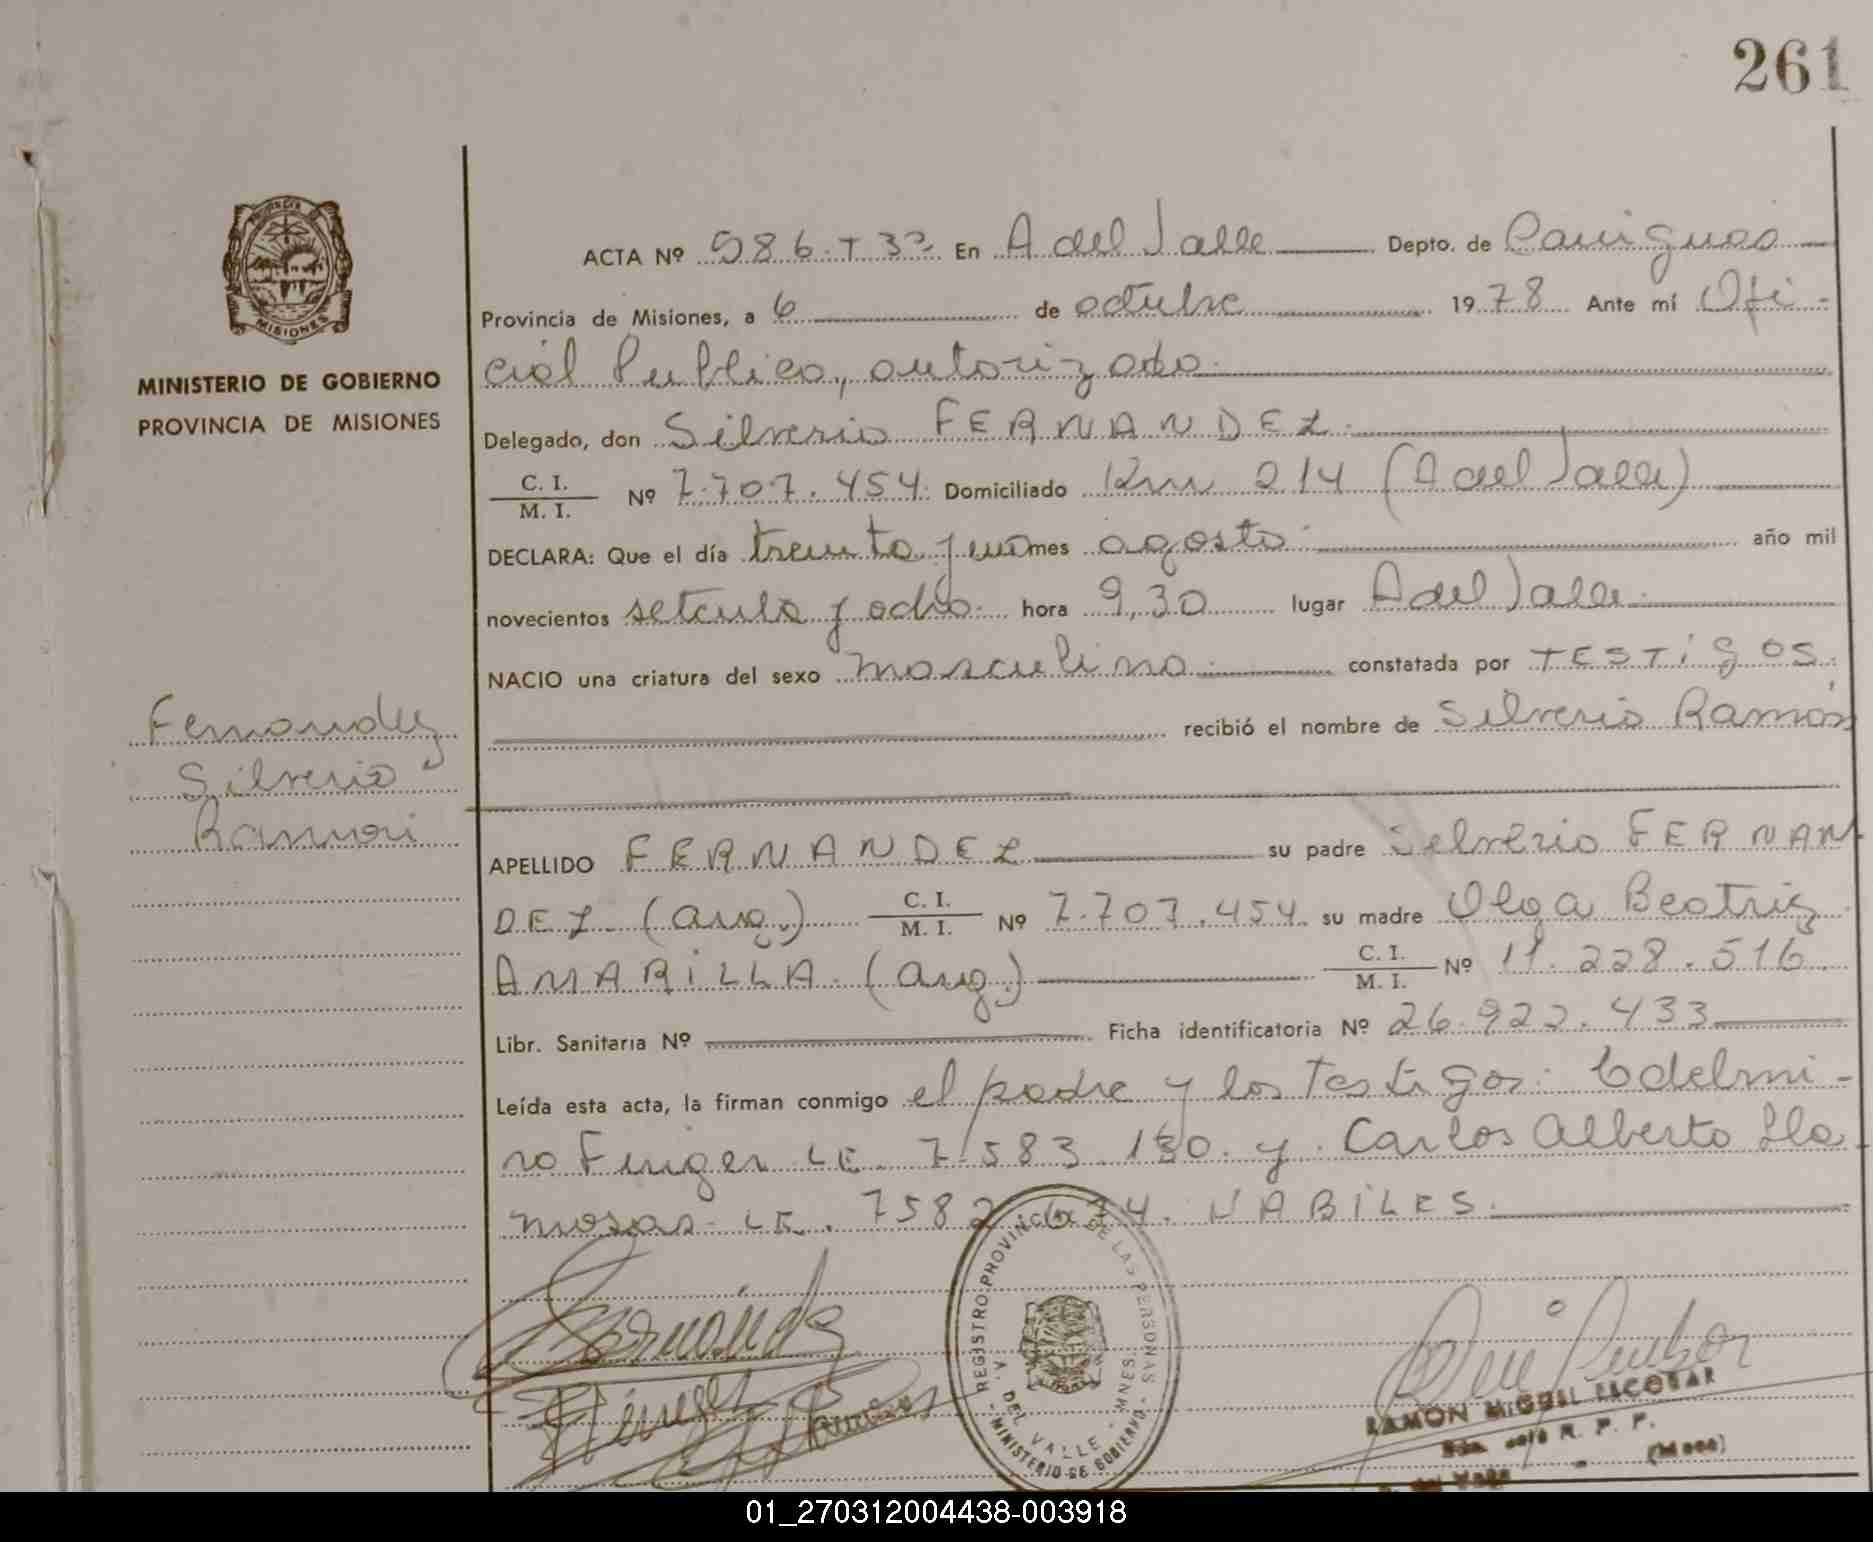 261
PROVINCIA DE
MISIONES
MINISTERIO DE GOBIERNO
PROVINCIA DE MISIONES
ACTA Nº 586.T 3º. En A del Valle Depto. de Cainguas
Provincia de Misiones, a 6 de octubre 1978 Ante mí Ofi-
cial Publico, autorizado.
Delegado, don Silverio FERNANDEZ.
C. I.
M. I. Nº 7.707.454. Domiciliado Km 214 (A del Valle)
DECLARA: Que el día treinta y uno mes agosto. año mil
novecientos setenta y ocho. hora 9,30 lugar A del Valle.
NACIO una criatura del sexo masculino. constatada por TESTIGOS.
recibió el nombre de Silverio Ramón
APELLIDO FERNANDEZ su padre Silverio FERNAN
DEZ (arg.) C. I.
M. I. Nº 7.707.454. su madre Olga Beatriz
AMARILLA. (arg.) C. I.
M. I. Nº 11.228.516.
Libr. Sanitaria Nº Ficha identificatoria Nº 26.922.433
Leída esta acta, la firman conmigo el padre y los Testigos: Edelmi-
ro Finger LE. 7.583.130. y. Carlos Alberto Lla
mosas. LE. 7582 674. HABILES.
Fernandez
Silverio
Ramón
REGISTRO PROVINCIAL DE LAS PERSONAS
A. V. DEL VALLE - MNES.
- MINISTERIO DE GOBIERNO -
RAMON MIGUEL ESCOBAR
R. P. P.
01_270312004438-003918